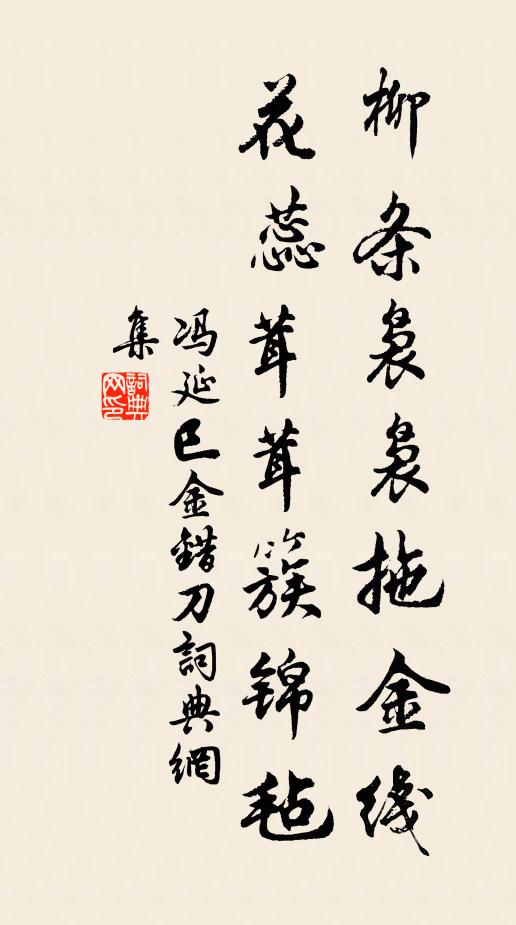 柳条袅袅拖金线
花蕊茸茸簇锦毡
冯延巳金错刀詞典網
集
詞典網印